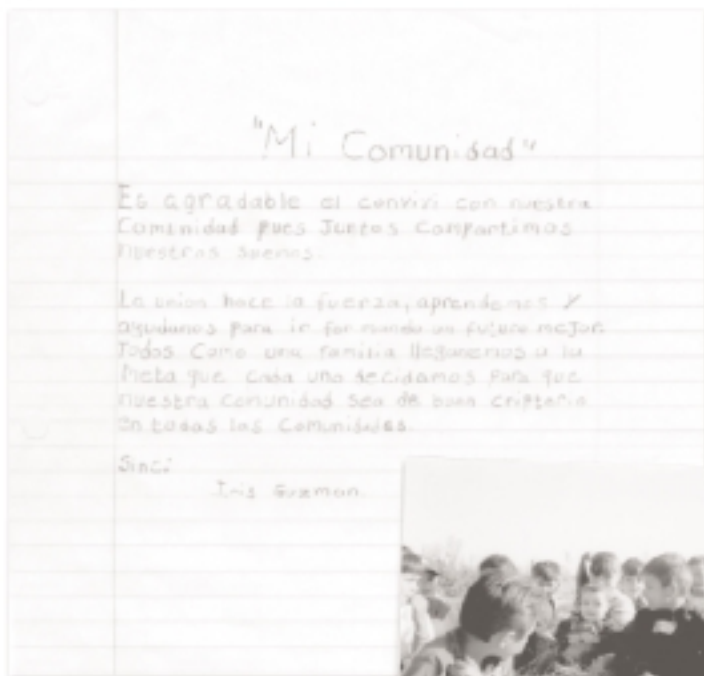 "Mi Comunidad"
Es agradable el convivi con nuestra
Comunidad pues Juntos Compartimos
nuestros suenos.
La union hace la fuerza, aprendemos y
ayudanos para ir formando un futuro mejor.
Todos Como una familia llegaremos a la
meta que cada uno decidamos para que
nuestra Comunidad sea de buen criptorio
en todas las Comunidades.
Guzman